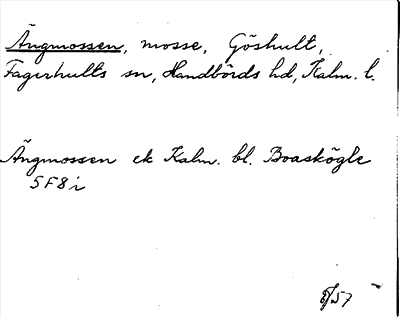 Ängmossen, mosse, Göshult,
Fagerhults sn, Handbörds hd, Kalm. l.
Ängmossen ek Kalm. bl. Boaskögle
5F8i
8/57